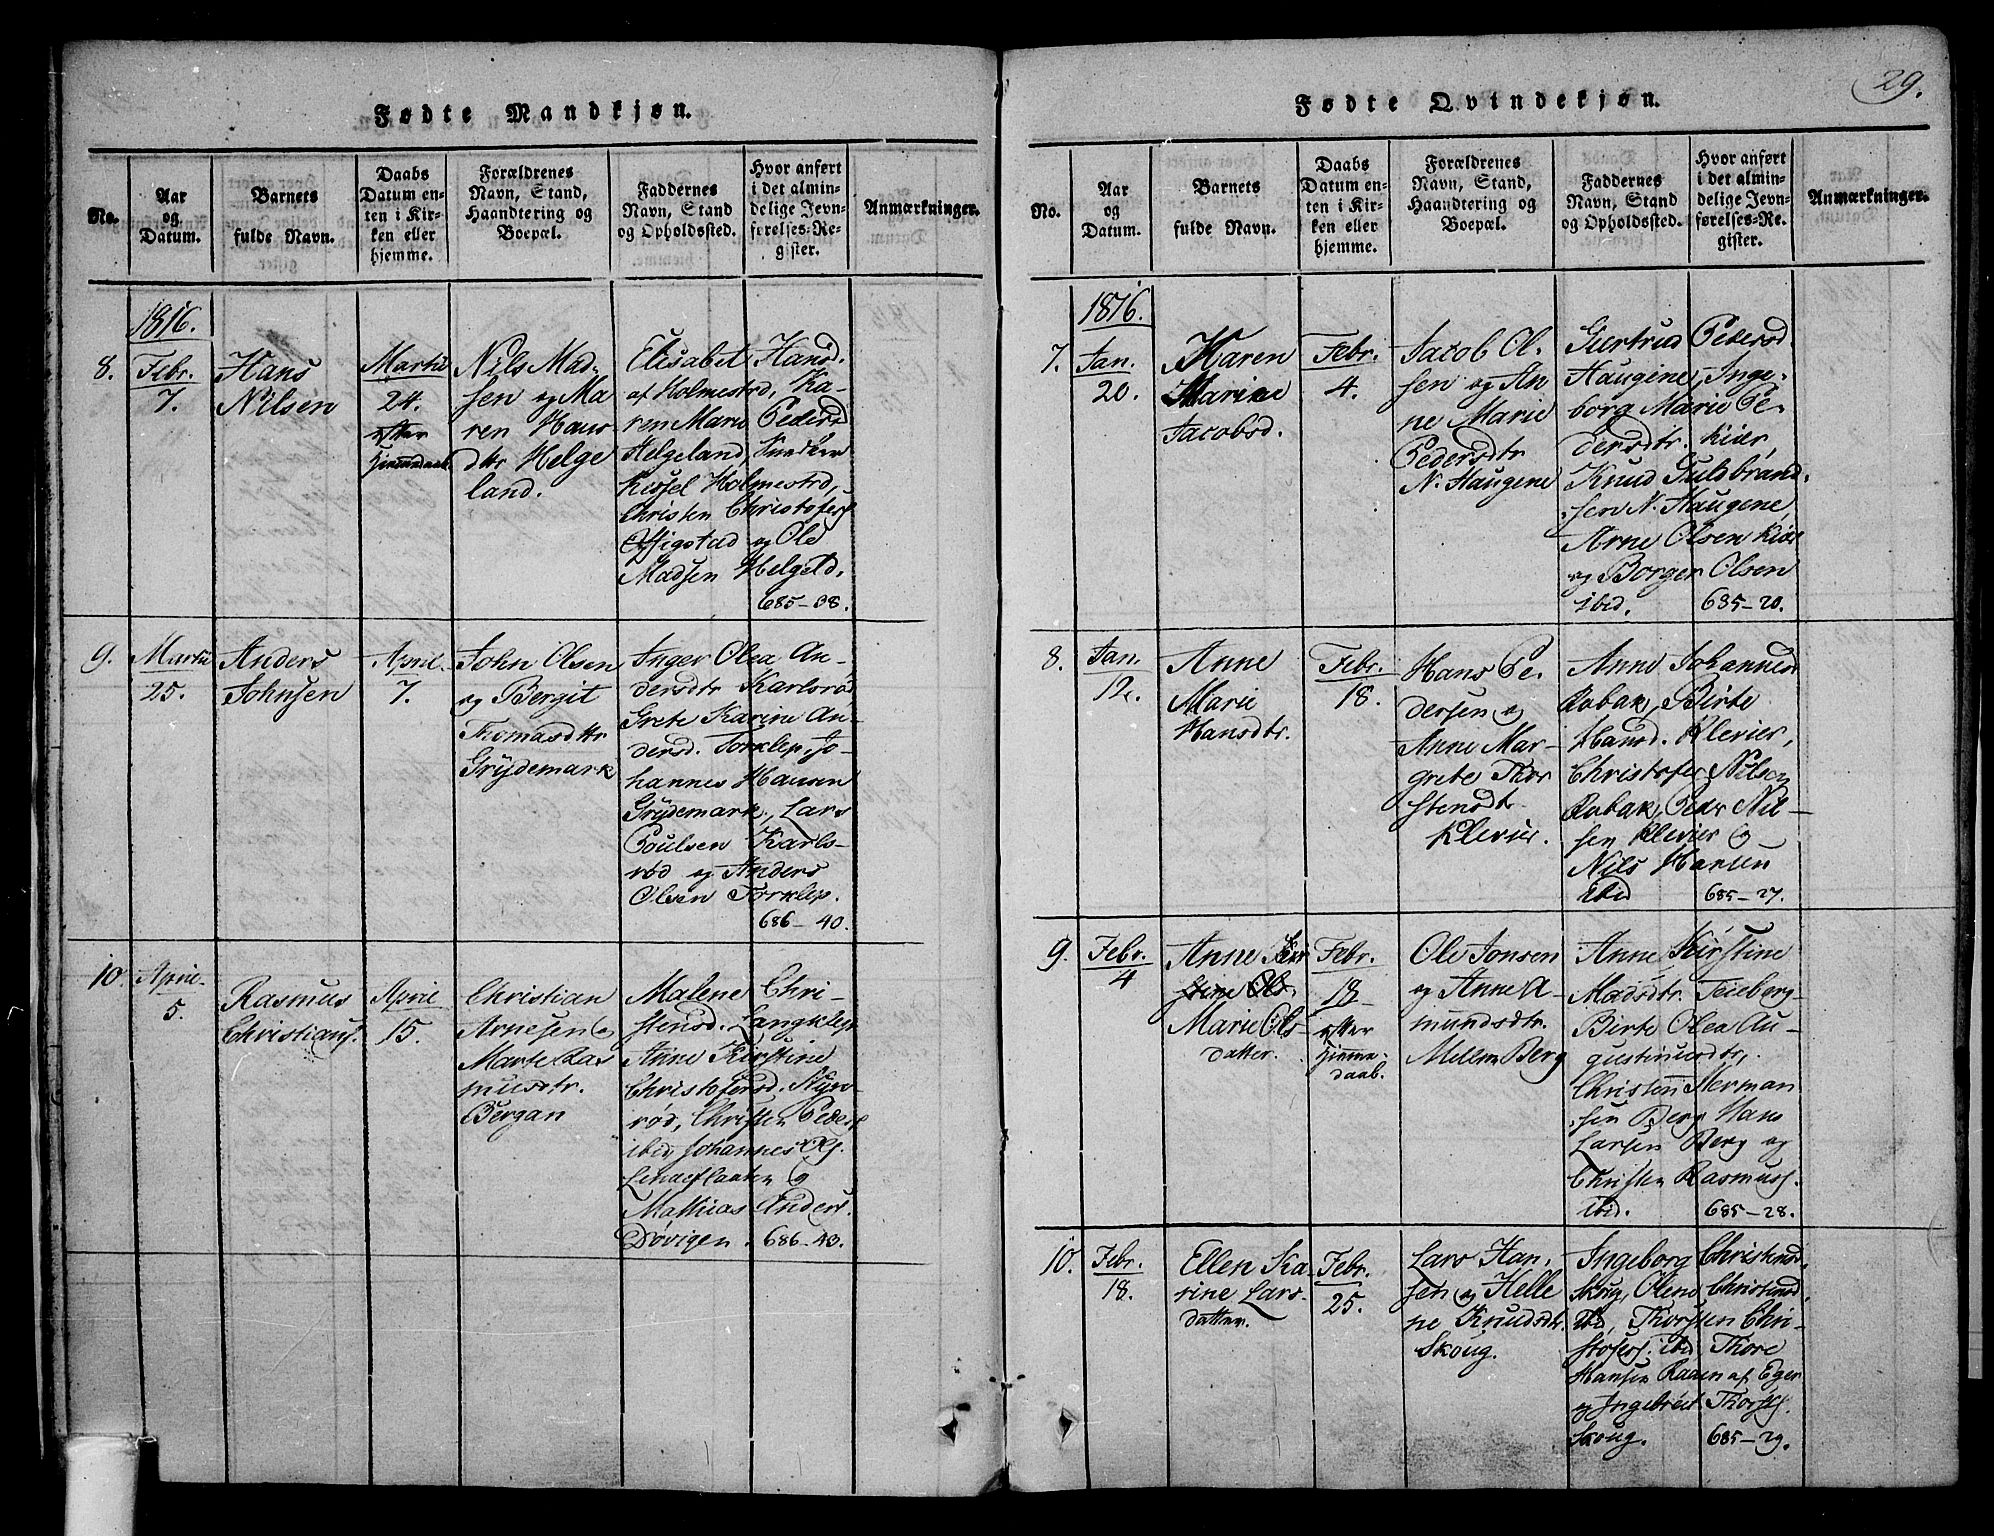 29.
Fødte Mandkjøn.
No.
Aar
og
Datum.
Barnets
fulde Navn.
Daabs
Datum en-
ten i Kir-
ken eller
hjemme.
Forældrenes
Navn, Stand,
Haandtering og
Boepæl.
Faddernes
Navn, Stand
og Opholdssted.
Hvor anført
i det almin-
delige Jevn-
førelses-Re-
gister.
Anmærkninger.
1816.
8.
Febr.
7.
Hans
Nilsen
Martii
24.
efter
Hjemmedaab.
Nils Mad-
sen og Ma
ren Hans
dttr Helge
land.
Elisabet Hansd.
af Holmestrd, Ka-
ren Marie Pedersd
Helgeland, Knud
Kissel Holmestrd,
Christen Christofers
Effigstad og Ole
Madsen Helgeld.
685-38.
9.
Martii
25.
Anders
Johnsen
April
7.
John Olsen
og Bergit
Thomasdttr
Grydemark
Inger Olea An-
dersdtr Karlsrød
Grete Karine An-
dersd. Torklep, Jo-
hannes Hansen
Grydemark, Lars
Poulsen Karls-
rød og Anders
Olsen Torklep.
686-40.
10.
April
5.
Rasmus
Christians.
April
15.
Christian
Arnesen og
Marte Ras
musdtr.
Bergan
Malene Chri-
stensd. Langklep
Anne Kirstine
Christofersd. Nyn-
rød, Christen Peders
ibid, Johannes
og
Mathias Anders.
Døvigen. 686-43.
Fødte Qvindekjøn.
No.
Aar
og
Datum.
Barnets
fulde Navn.
Daabs
Datum en-
ten i Kir-
ken eller
hjemme.
Forældrenes
Navn, Stand,
Haandtering og
Boepæl.
Faddernes
Navn, Stand
og Opholdssted.
Hvor anført
i det almin-
delige Jevn-
førelses-Re-
gister.
Anmærkninger.
1816.
7.
Jan.
20.
Karen
Marine
Jacobsd.
Febr.
4.
Jacob Ol-
sen og An
ne Marie
Pedersdtr
N. Haugene
Giertrud Pedersd
Haugene, Inge-
borg Marie Pe-
dersdtr. Kiær
Knud Gulsbrand-
sen N. Haugene
Arne Olsen Kiær
og Borger Olsen
ibid. 685-20.
8.
Jan.
12.
Anne
Marie
Hansdtr.
Febr.
18.
Hans Pe
dersen og
Anne Mar-
grete Thor
stensdtr.
Klevier.
Anne Johannesd
Robak, Birte
Hansd. Klevier,
Christofer Nilsen
Robak, Peder Niel-
sen Klevier og
Nils Hansen
ibid 685-27.
9.
Febr.
4
Anne Kir
stine Ols.
Marie Ols
datter.
Febr.
18
efter
Hjemme-
daab.
Ole Jonsen
og Anne A-
mundsdtr.
Mellem Berg
Anne Kirstine
Madsdtr. Teieberg
Birte Olea Au-
gustinusdtr,
Christen Herman
sen Berg Hans
Larsen Berg og
Christen Rasmuss.
ibid. 685-28.
10.
Febr.
18.
Ellen Ka-
rine Lars-
datter.
Febr.
25.
Lars Han-
sen og Helle
ne Knudsdtr.
Skoug.
Ingeborg Christensd.
Skoug, Olene Christensd,
ibid, Thorsten Chri-
stofers. ibid, Thore
Hansen Raaen af Eger
og Ingebret Thorsts.
Skoug. 685-29.